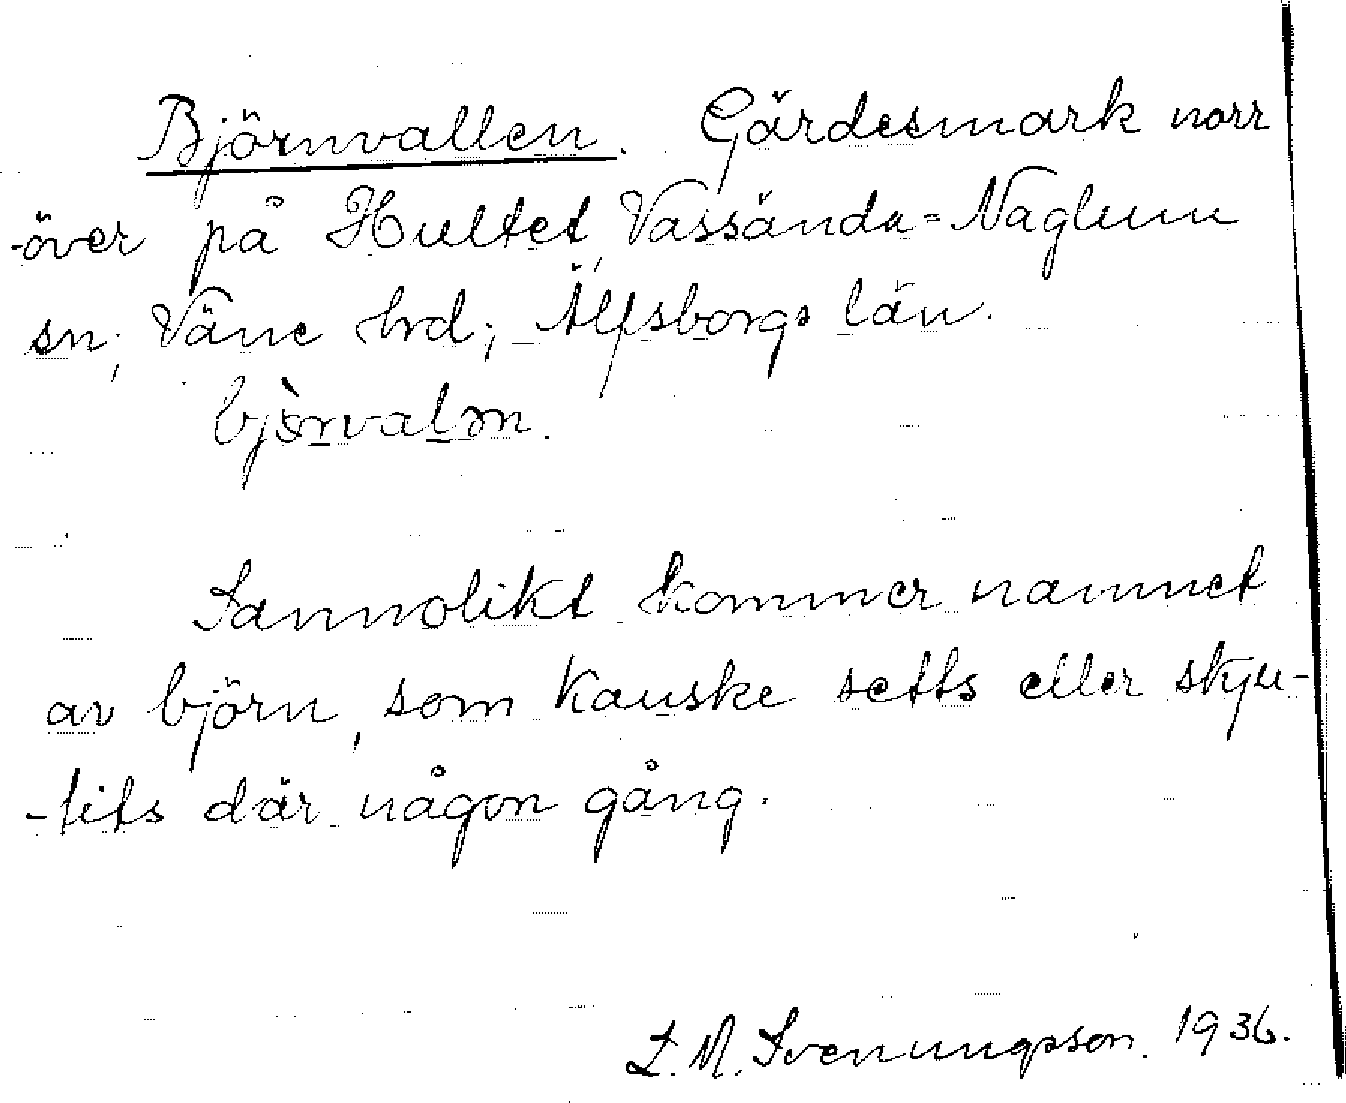 Björnvallen. Gärdesmark norr
över på Hultet, Vassända-Naglum
sn, Väne hrd, Älfsborgs län.
bjö̀rvalən.
Sannolikt kommer namnet
av björn, som kanske setts eller skju-
-tits där någon gång.
L. M. Svenungsson. 1936.